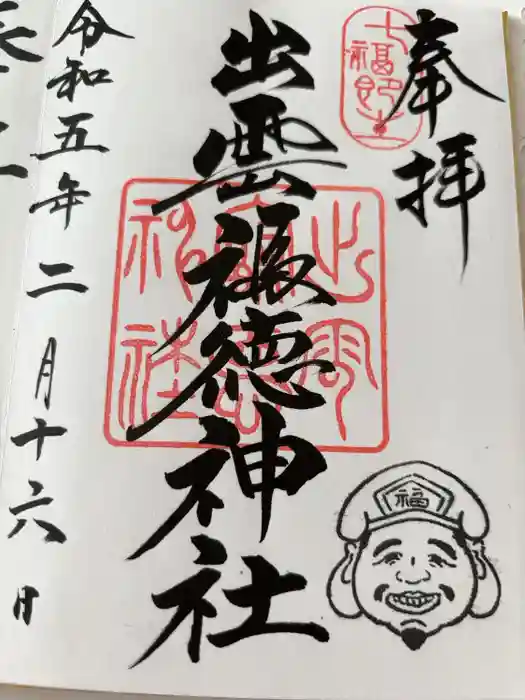 奉拝
出雲福徳神社
令和五年二月十六日
福